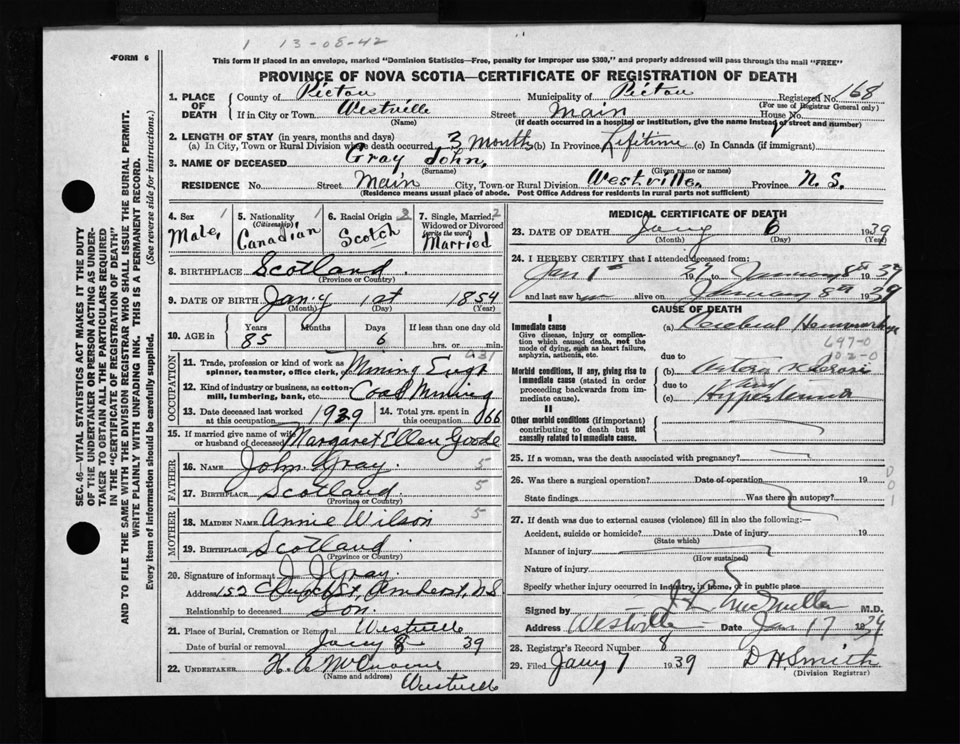 1 13-08-42
FORM 6
This form if placed in an envelope, marked "Dominion Statistics—Free, penalty for improper use $300," and properly addressed will pass through the mail "FREE"
PROVINCE OF NOVA SCOTIA—CERTIFICATE OF REGISTRATION OF DEATH
1. PLACE OF DEATH County of Pictou Municipality of Pictou Registered No. 168
(For use of Registrar General only)
If in City or Town Westville Street Main House No.
(Name) (If death occurred in a hospital or institution, give the name instead of street and number)
2. LENGTH OF STAY (in years, months and days)
(a) In City, Town or Rural Division where death occurred 3 Months (b) In Province Lifetime (c) In Canada (if immigrant)
3. NAME OF DECEASED Gray John,
(Surname) (Given name or names)
RESIDENCE No. Street Main City, Town or Rural Division Westville. Province N. S.
(Residence means usual place of abode. Post Office Address for residents in rural parts not sufficient)
4. Sex 1 Male,
5. Nationality 1 (Citizenship) Canadian
6. Racial Origin 2 Scotch
7. Single, Married, 2 Widowed or Divorced (write the word) Married
8. BIRTHPLACE Scotland.
(Province or Country)
9. DATE OF BIRTH Jany 1st 1854
(Month) (Day) (Year)
10. AGE in Years Months Days If less than one day old
85 6 hrs. or min.
OCCUPATION
11. Trade, profession or kind of work as spinner, teamster, office clerk, etc. Mining Engr
431
12. Kind of industry or business, as cotton-mill, lumbering, bank, etc. Coal Mining
13. Date deceased last worked at this occupation 1929 14. Total yrs. spent in this occupation 66
15. If married give name of wife or husband of deceased Margaret Ellen Goode
FATHER
16. NAME John Gray. 5
17. BIRTHPLACE Scotland 5
(Province or Country)
MOTHER
18. MAIDEN NAME Annie Wilson 5
19. BIRTHPLACE Scotland.
(Province or Country)
20. Signature of informant J. J. Gray.
Address 152 St, Amherst, N S
Relationship to deceased Son.
21. Place of Burial, Cremation or Removal Westville
Date of burial or removal Jany 8 39
22. UNDERTAKER H. A
(Name and address)
Westville
MEDICAL CERTIFICATE OF DEATH
23. DATE OF DEATH Jany 6 1939
(Month) (Day) (Year)
24. I HEREBY CERTIFY that I attended deceased from:
Jan 1st 1937 to January 8th 1939
and last saw alive on January 8th 1939
CAUSE OF DEATH
I
Immediate cause (a) Cerebral Hemorrhage
Give disease, injury or complication which caused death, not the mode of dying, such as heart failure, asphyxia, asthenia, etc.
697-0
102-0
due to
Morbid conditions, if any, giving rise to immediate cause (stated in order proceeding backwards from immediate cause). (b) Arterio Sclerosis
due to and
(c) Hypertension
II
Other morbid conditions (if important) contributing to death but not causally related to immediate cause.
25. If a woman, was the death associated with pregnancy?
26. Was there a surgical operation? Date of operation 19
State findings Was there an autopsy?
27. If death was due to external causes (violence) fill in also the following:—
Accident, suicide or homicide? Date of injury 19
(State which)
Manner of injury
(How sustained)
Nature of injury
Specify whether injury occurred in industry, in home, or in public place
Signed by M.D.
Address Westville Date Jan 17 1939
28. Registrar's Record Number 8
29. Filed Jany 7 1939 D H Smith
(Division Registrar)
SEC. 46—VITAL STATISTICS ACT MAKES IT THE DUTY
OF THE UNDERTAKER OR PERSON ACTING AS UNDER-
TAKER TO OBTAIN ALL THE PARTICULARS REQUIRED
IN THE "CERTIFICATE OF REGISTRATION OF DEATH"
AND TO FILE THE SAME WITH THE DIVISION REGISTRAR WHO SHALL ISSUE THE BURIAL PERMIT.
WRITE PLAINLY WITH UNFADING INK. THIS IS A PERMANENT RECORD.
Every item of information should be carefully supplied. (See reverse side for instructions.)